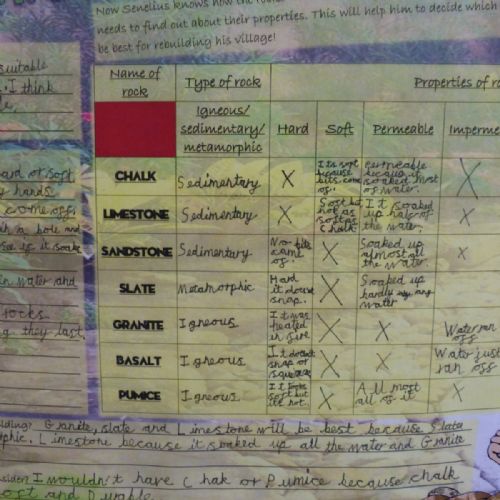 Now Senelius knows how the
needs to find out about their properties. This will help him to decide which
be best for rebuilding his village!
suitable
I think
Name of rock Type of rock Properties of ro
Igneous/ sedimentary/ metamorphic Hard Soft Permeable Imperme
CHALK Sedimentary X It is soft because bits come of. Permeable because it soaked most of water. X
LIMESTONE Sedimentary X Soft but not as soft as chalk It soaked up half of the water. X
SANDSTONE Sedimentary No bits came of. X Soaked up almost all the water X
SLATE Metamorphic Hard it doesnt snap. X Soaked up hardly any water
GRANITE Igneous It was heated in fire X X Water ran off
BASALT Igneous It doesnt snap or X X Water just ran off
PUMICE Igneous It looks soft but its not. X All most all of it X
hard or soft
hands
come off.
in a bowl and
see if it soak
in water and
rocks
they last.
lding? Granite, slate and Limestone will be best because Slate
phic. Limestone because it soaked up all the water and Granite
I wouldn't have Chak or Pumice because chalk
soft and